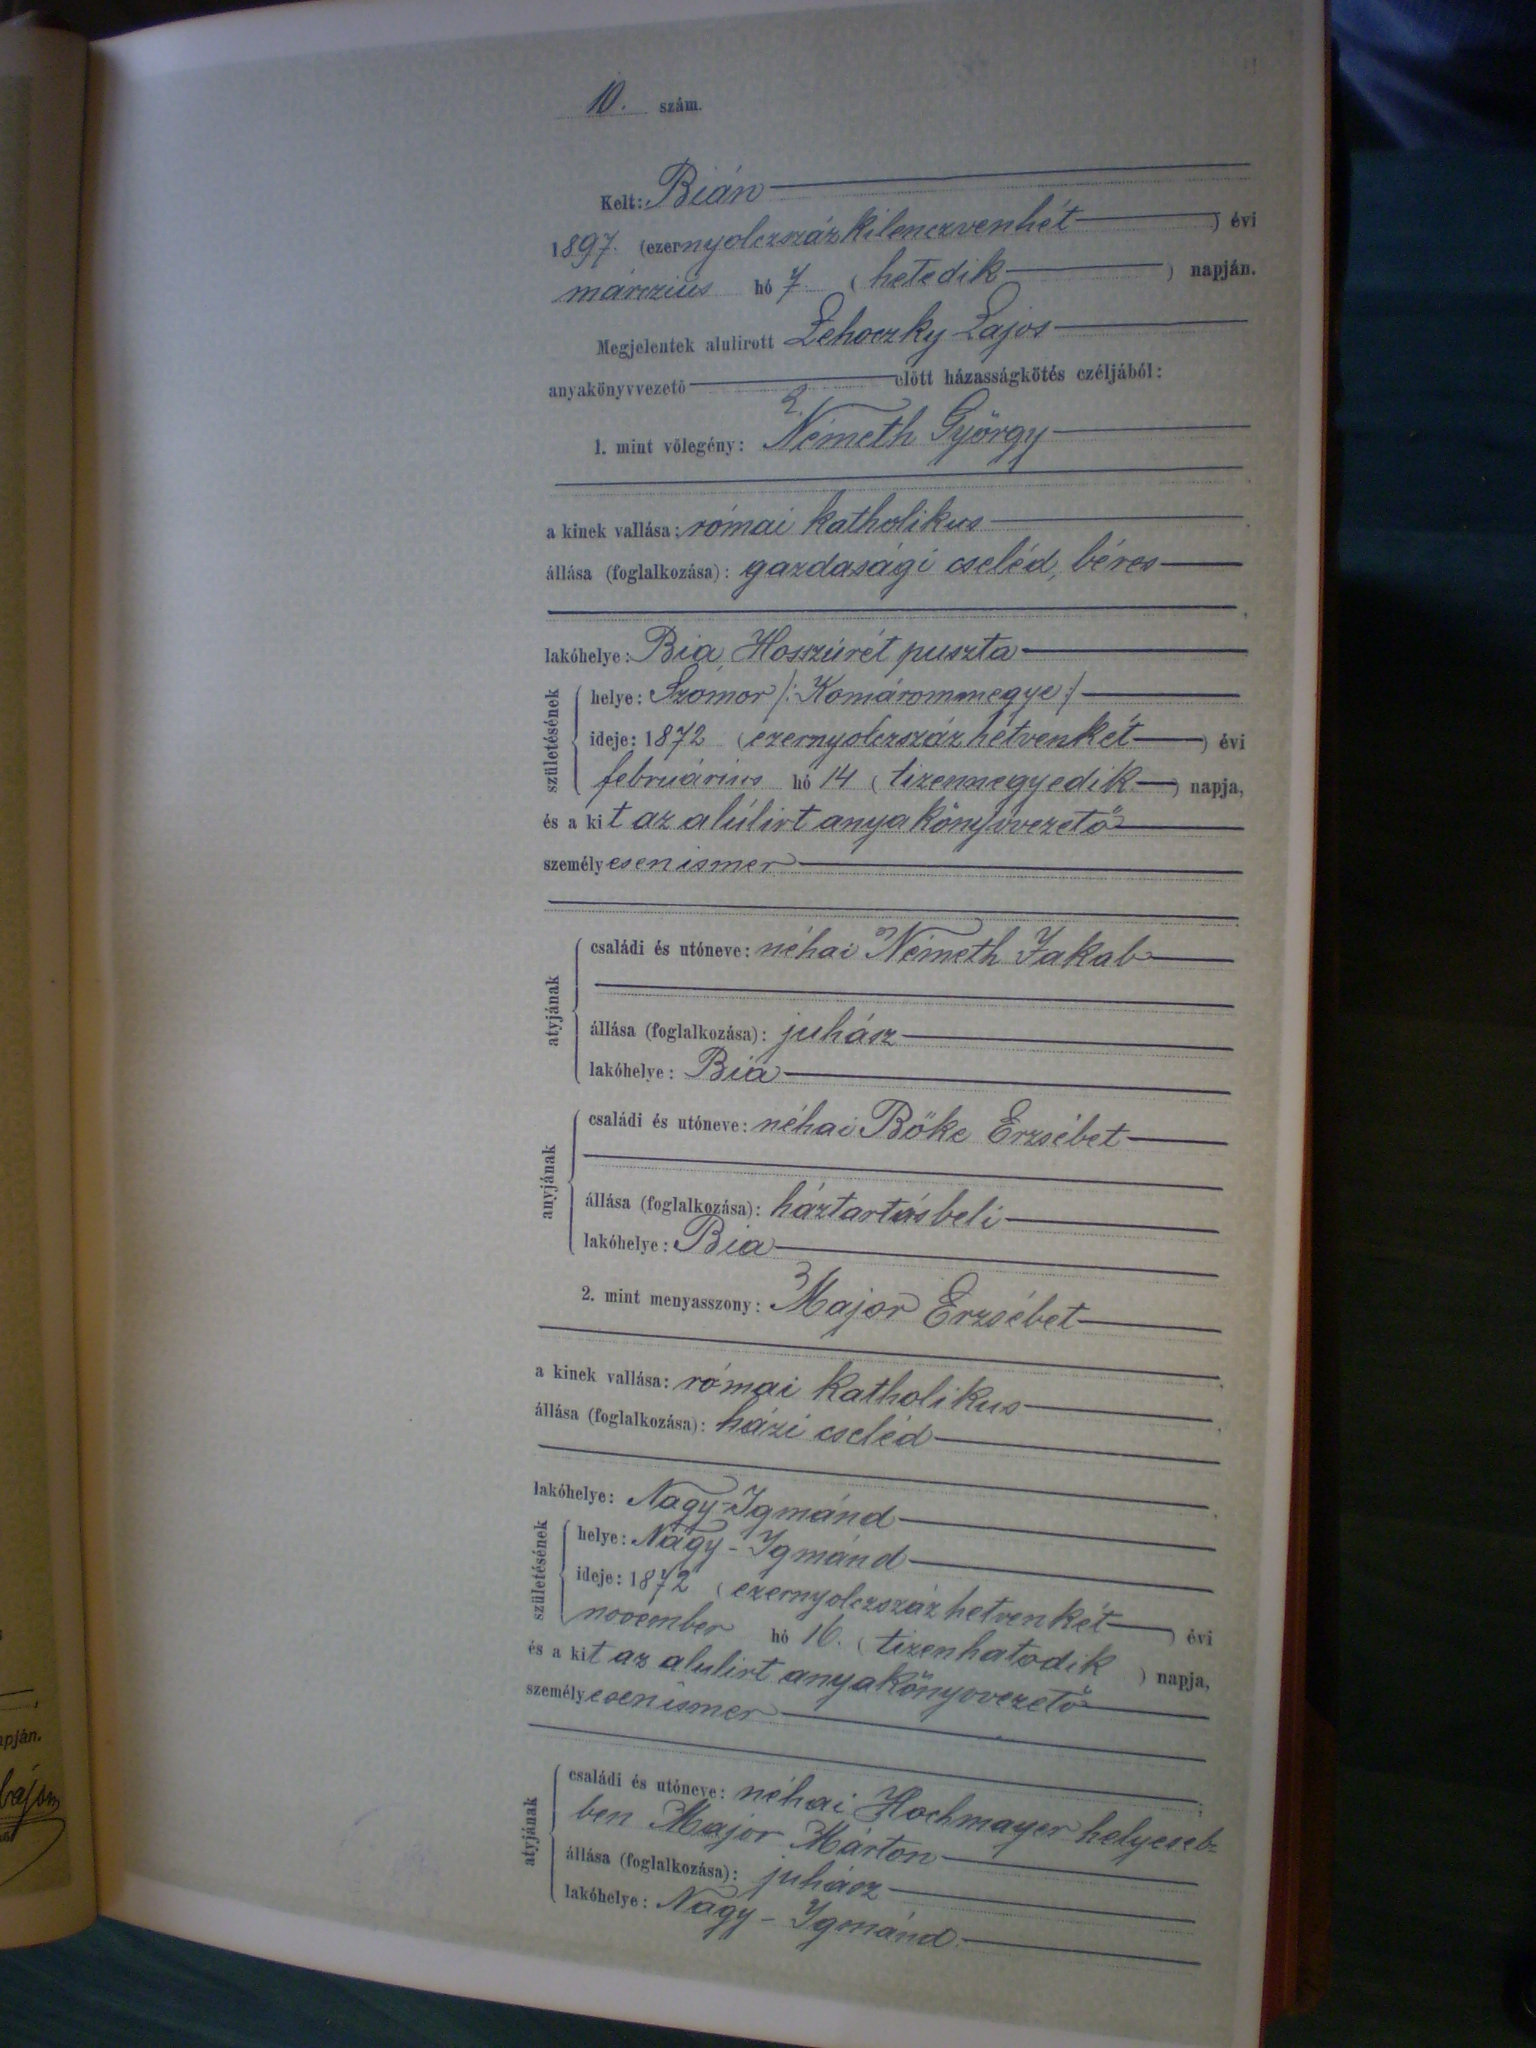 10. szám.
Kelt: Bián
1897. (ezernyolczszáz kilenczvenhét) évi
márczius hó 7. (hetedik) napján.
Megjelentek alulirott Lehoczky Lajos
anyakönyvvezető előtt házasságkötés czéljából:
1. mint vőlegény: Németh György
a kinek vallása: római katholikus
állása (foglalkozása): gazdasági cseléd, béres
lakóhelye: Bia, Hosszúrét puszta
születésének
helye: Szomor /: Komárommegye :/
ideje: 1872 (ezernyolczszáz hetvenkét) évi
február​ius hó 14 (tizennegyedik) napja,
és a kit az alúlirt anyakönyvvezető
személyesen ismer
atyjának
családi és utóneve: néhai Németh Jakab
állása (foglalkozása): juhász
lakóhelye: Bia
anyjának
családi és utóneve: néhai Bőke Erzsébet
állása (foglalkozása): háztartásbeli
lakóhelye: Bia
2. mint menyasszony: Major Erzsébet
a kinek vallása: római katholikus
állása (foglalkozása): házi cseléd
lakóhelye: Nagy-Igmánd
születésének
helye: Nagy-Igmánd
ideje: 1872 (ezernyolczszáz hetvenkét) évi
november hó 16. (tizenhatodik) napja,
és a kit az alulirt anyakönyvvezető
személyesen ismer
atyjának
családi és utóneve: néhai Hochmayer helyeseb-
ben Major Márton
állása (foglalkozása): juhász
lakóhelye: Nagy-Igmánd.
apján.